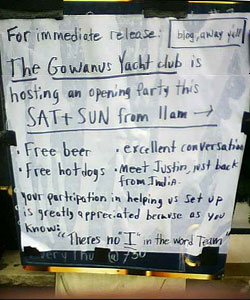 For immediate release:
blog, away y'all
The Gowanus Yacht club is
hosting an opening Party this
SAT + SUN from 11am →
• Free beer • excellent conversation
• Free hotdogs • Meet Justin, just back
from India.
your partipation in helping us set up
is greatly appreciated because as you
know:
"Theres no "I" in the word Team"